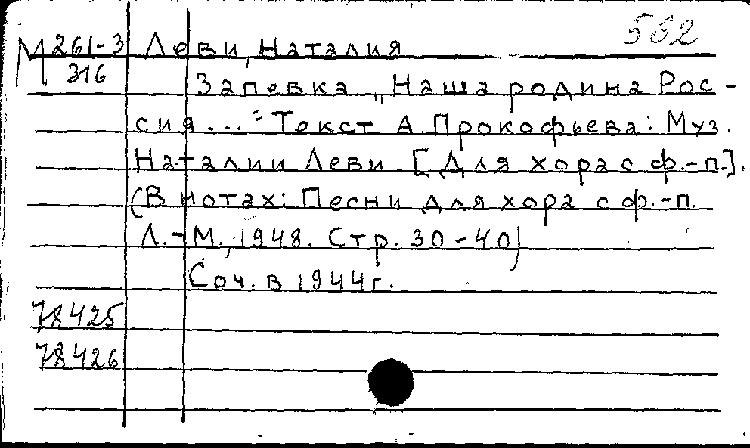 562
М 261-3 Леви, Наталия
316
Запевка „Наша родина Рос-
сия..." Текст А Прокофьева: Муз.
Наталии Леви [Для хора с ф.-п.].
(В нотах: Песни для хора с ф.-п.
Л.-М., 1948. Стр. 30-40)
Соч. в 1944г.
78425
78426